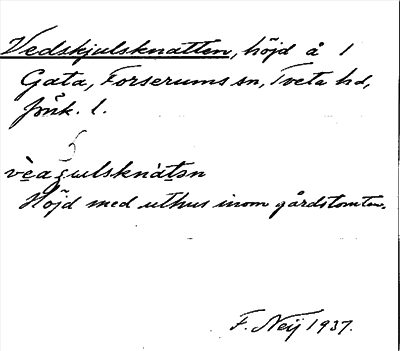 Vedskjulsknatten, höjd å 1
Gata, Forserums sn, Tveta hd,
Jönk. l.
vèaʒulsknàtən
Höjd med uthus inom gårdstomten.
F. Neij 1937.